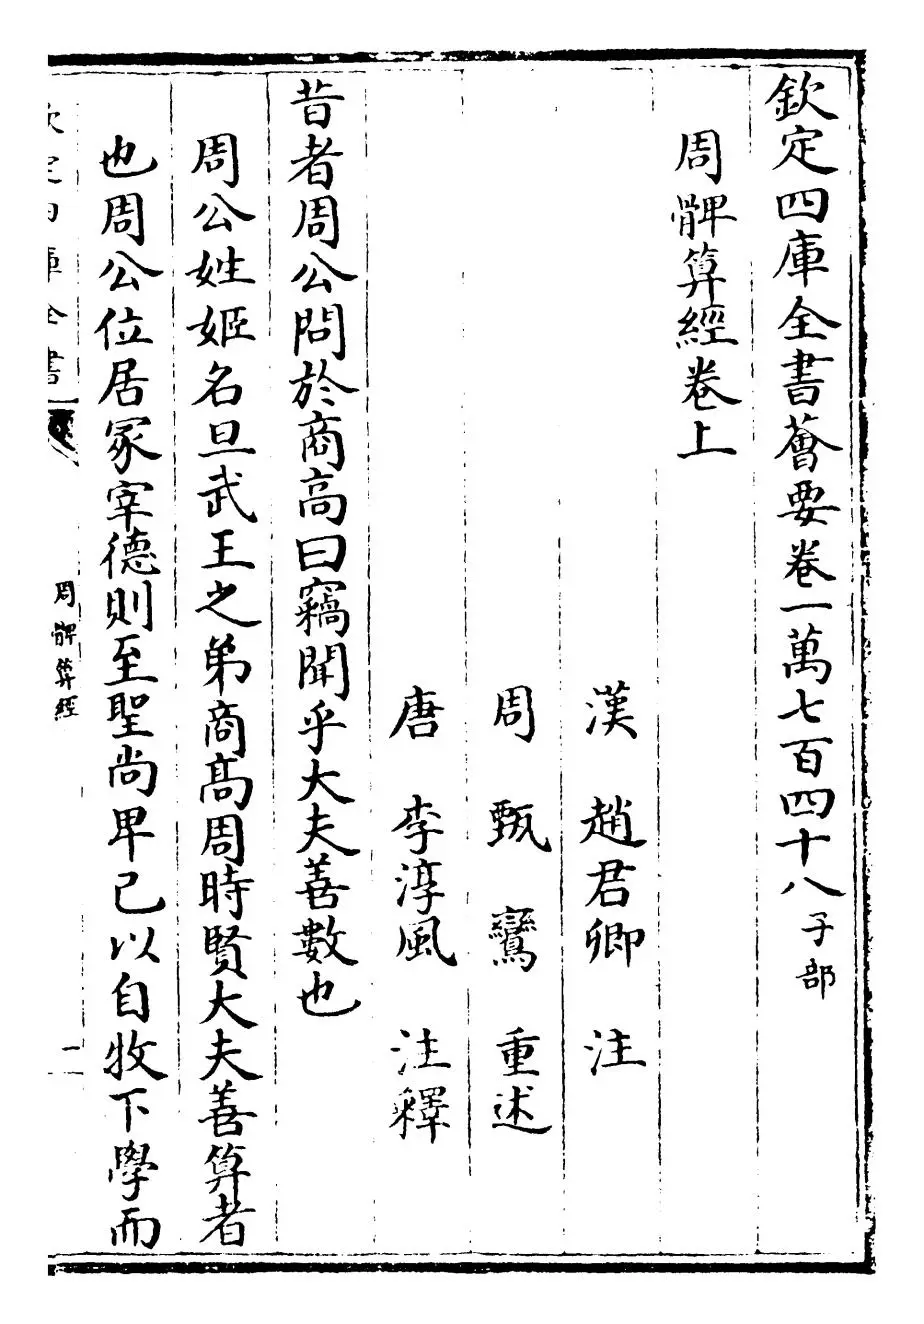 欽定四庫全書薈要卷一萬七百四十八子部
周髀算經卷上
漢 趙君卿 注
周 甄鸞 重述
唐 李淳風 注釋
昔者周公問於商高曰竊聞乎大夫善數也
周公姓姬名旦武王之弟商高周時賢大夫善算者
也周公位居冢宰德則至聖尚卑己以自牧下學而
欽定四庫全書
周髀算經
一